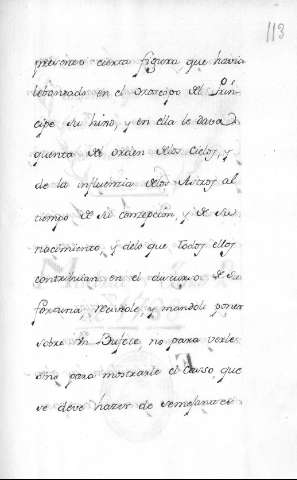 113
presenteo cierta figura que havia
lebantado en el oroscopo del Prin-
cipe su hixo, y en ella le dava
quenta del orden delos Cielos, y
de la influenzia delos Astros al
tiempo de su conzepcion, y de su
nacimiento, y delo que todos ellos
contribuian en el discurso de su
fortuna, reciviole, y mandole poner
sobre un Bufete no para verle
sino para mostrarle el Caso que
se deve hazer de semejantes